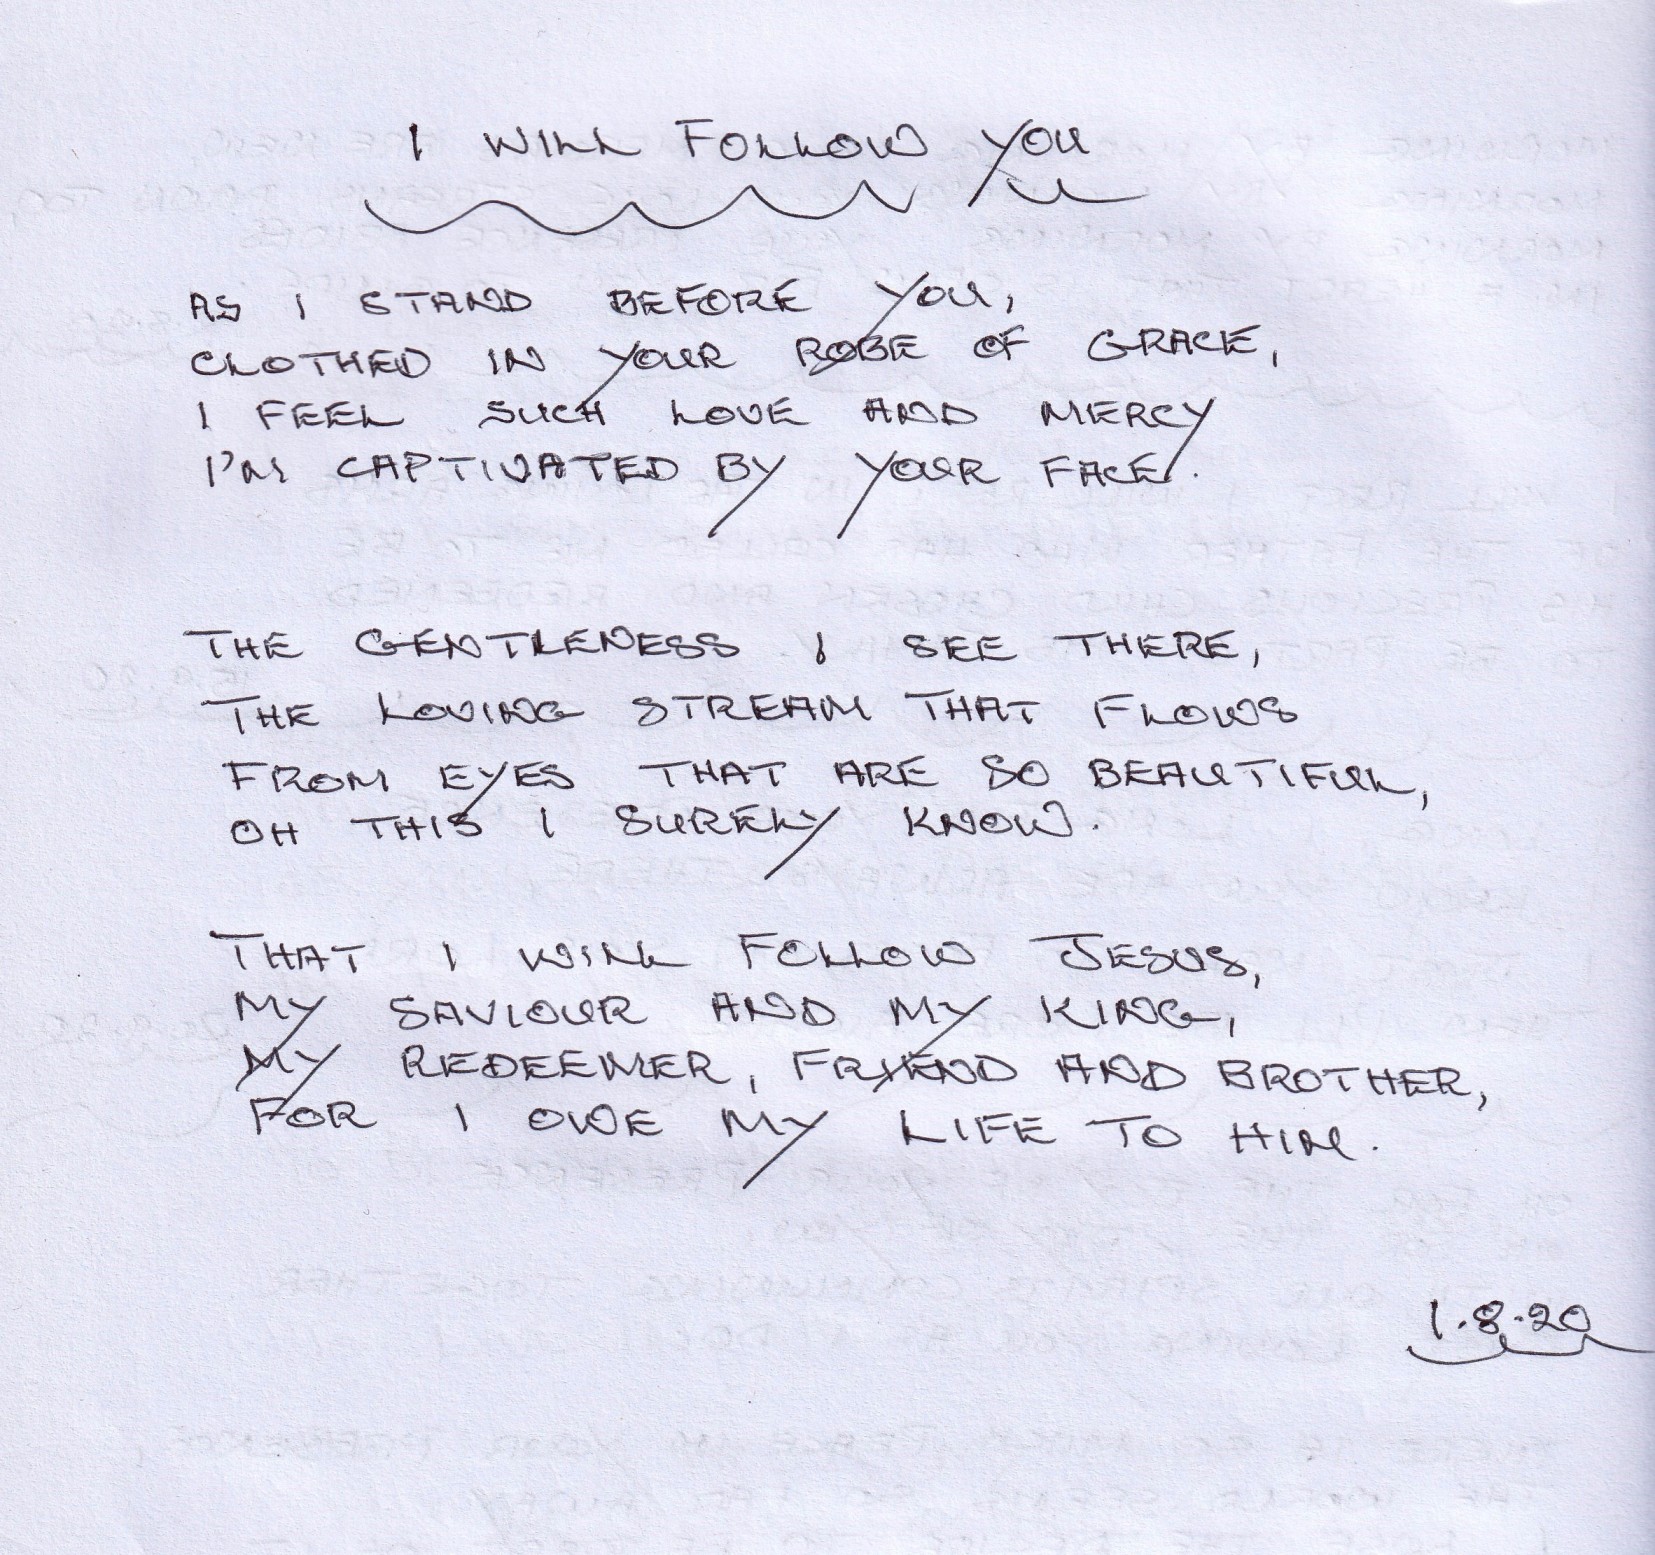 I WILL FOLLOW YOU
AS I STAND BEFORE YOU,
CLOTHED IN YOUR ROBE OF GRACE,
I FEEL SUCH LOVE AND MERCY
I'M CAPTIVATED BY YOUR FACE.
THE GENTLENESS I SEE THERE,
THE LOVING STREAM THAT FLOWS
FROM EYES THAT ARE SO BEAUTIFUL,
OH THIS I SURELY KNOW.
THAT I WILL FOLLOW JESUS,
MY SAVIOUR AND MY KING,
MY REDEEMER, FRIEND AND BROTHER,
FOR I OWE MY LIFE TO HIM.
1.8.20